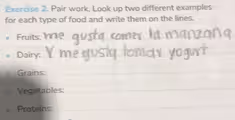 Exercise 2. Pair work. Look up two different examples
for each type of food and write them on the lines.
• Fruits: me gusta comer la manzana
• Dairy: Y me gusta tomar yogurt
• Grains:
• Vegetables:
• Proteins: